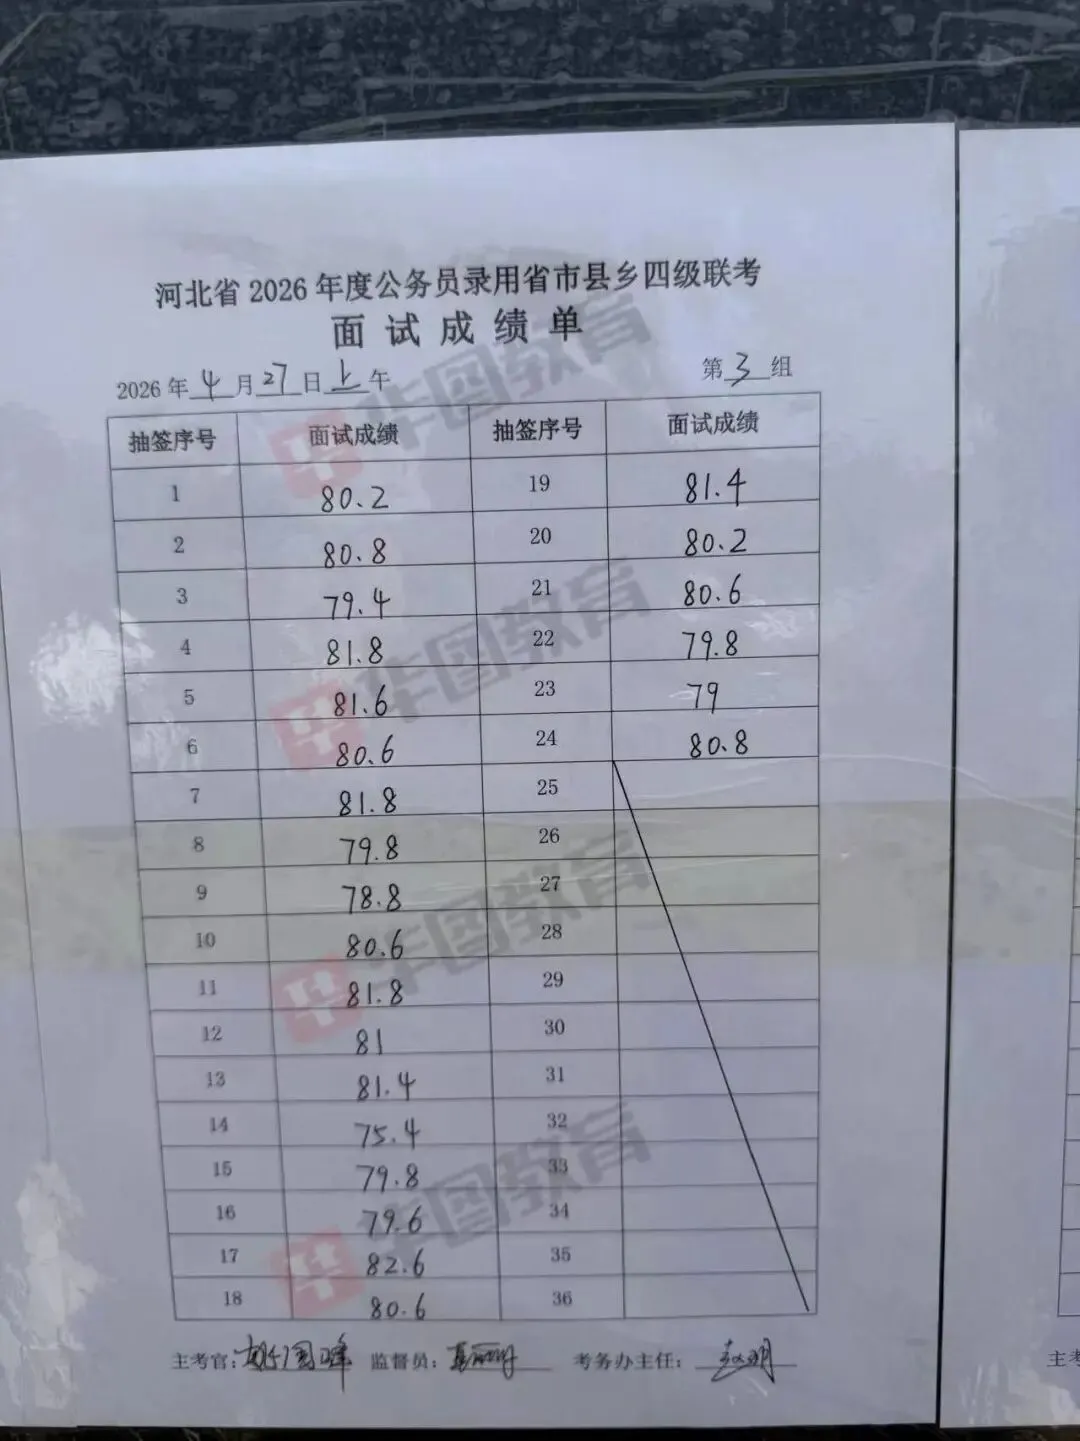 河北省2026年度公务员录用省市县乡四级联考
面试成绩单
2026年4月27日上午 第3组
抽签序号 面试成绩 抽签序号 面试成绩
1 80.2 19 81.4
2 80.8 20 80.2
3 79.4 21 80.6
4 81.8 22 79.8
5 81.6 23 79
6 80.6 24 80.8
7 81.8 25
8 79.8 26
9 78.8 27
10 80.6 28
11 81.8 29
12 81 30
13 81.4 31
14 75.4 32
15 79.8 33
16 79.6 34
17 82.6 35
18 80.6 36
主考官: 监督员: 考务办主任:
主考
华图教育
华图教育
华图教育
华图教育